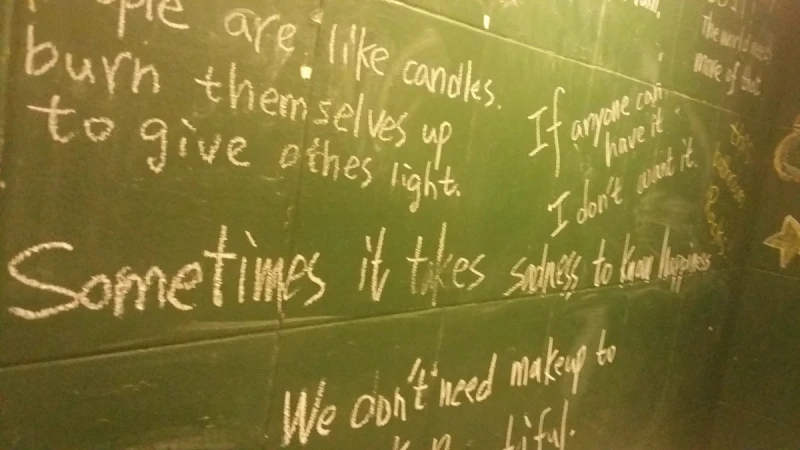 people are like candles.
burn themselves up
to give othes light.
If anyone can
have it
I don't want it.
Sometimes it takes sadness to know happiness
We don't need makeup to
The world needs
more of that